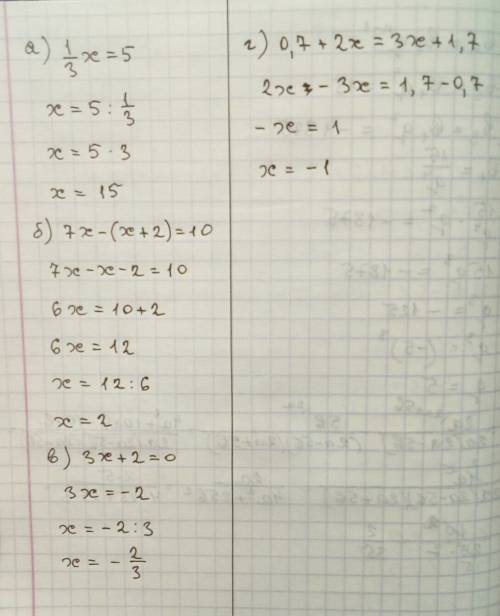 а) 1/3 x = 5
x = 5 : 1/3
x = 5 · 3
x = 15
б) 7x - (x + 2) = 10
7x - x - 2 = 10
6x = 10 + 2
6x = 12
x = 12 : 6
x = 2
в) 3x + 2 = 0
3x = -2
x = -2 : 3
x = - 2/3
г) 0,7 + 2x = 3x + 1,7
2x - 3x = 1,7 - 0,7
-x = 1
x = -1